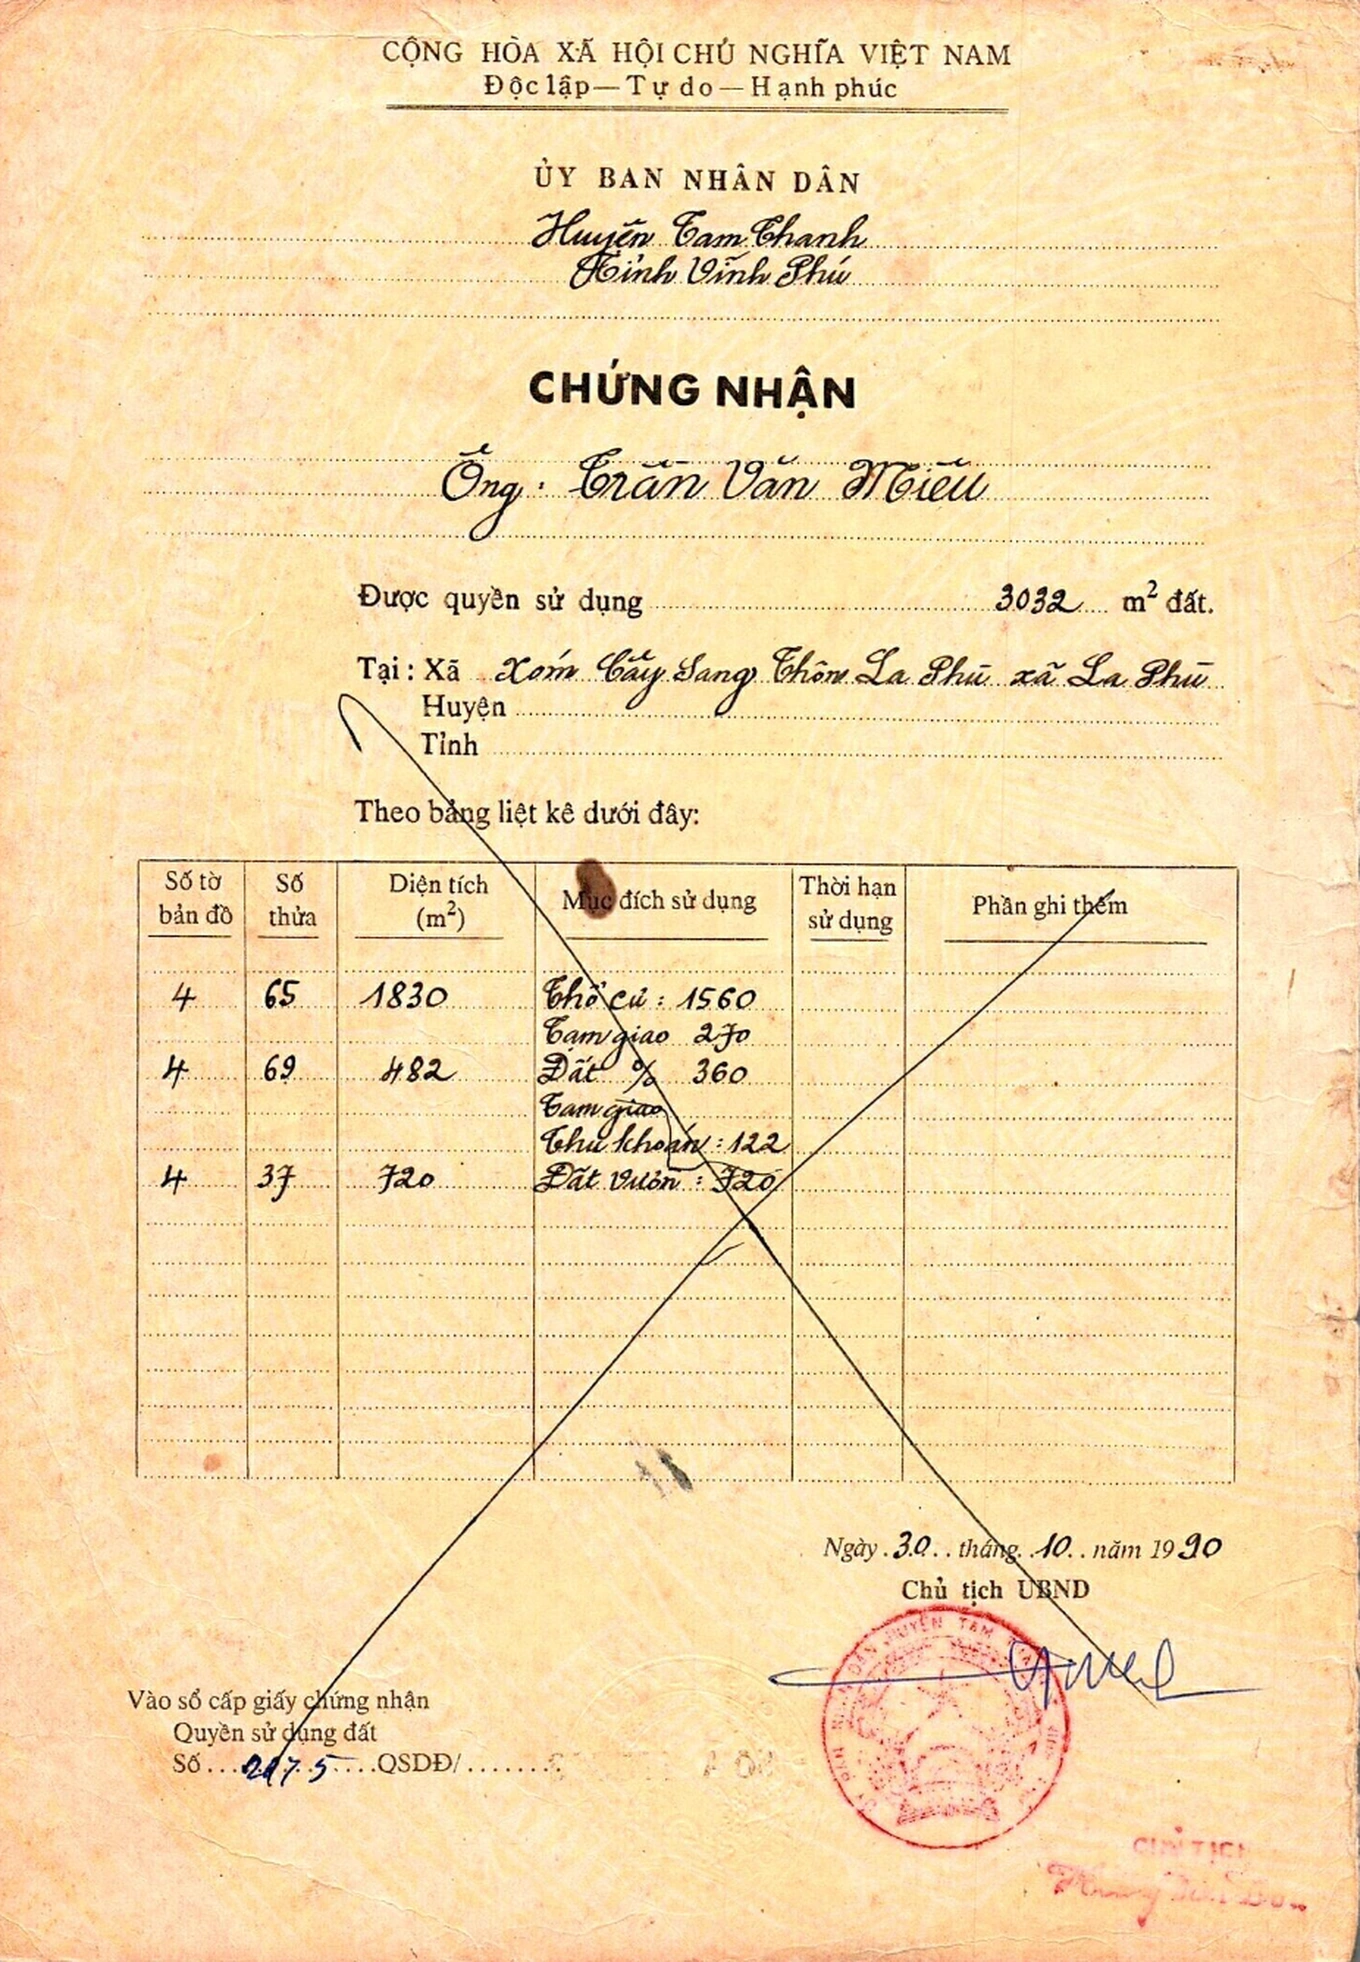 CỘNG HÒA XÃ HỘI CHỦ NGHĨA VIỆT NAM
Độc lập — Tự do — Hạnh phúc
ỦY BAN NHÂN DÂN
Huyện Tam Thanh
Tỉnh Vĩnh Phú
CHỨNG NHẬN
Ông: Trần Văn Miều
Được quyền sử dụng 3032 m² đất.
Tại: Xã Xóm Cây Sang Thôn La Phù xã La Phù
Huyện
Tỉnh
Theo bảng liệt kê dưới đây:
Số tờ bản đồ Số thửa Diện tích (m²) Mục đích sử dụng Thời hạn sử dụng Phần ghi thêm
4 65 1830 Thổ cư: 1560
Tạm giao 270
4 69 482 Đất % 360
Tạm giao
Thu khoán: 122
4 37 720 Đất vườn: 720
Ngày 30 tháng 10 năm 1990
Chủ tịch UBND
Vào sổ cấp giấy chứng nhận
Quyền sử dụng đất
Số QSDĐ/
CHỦ TỊCH